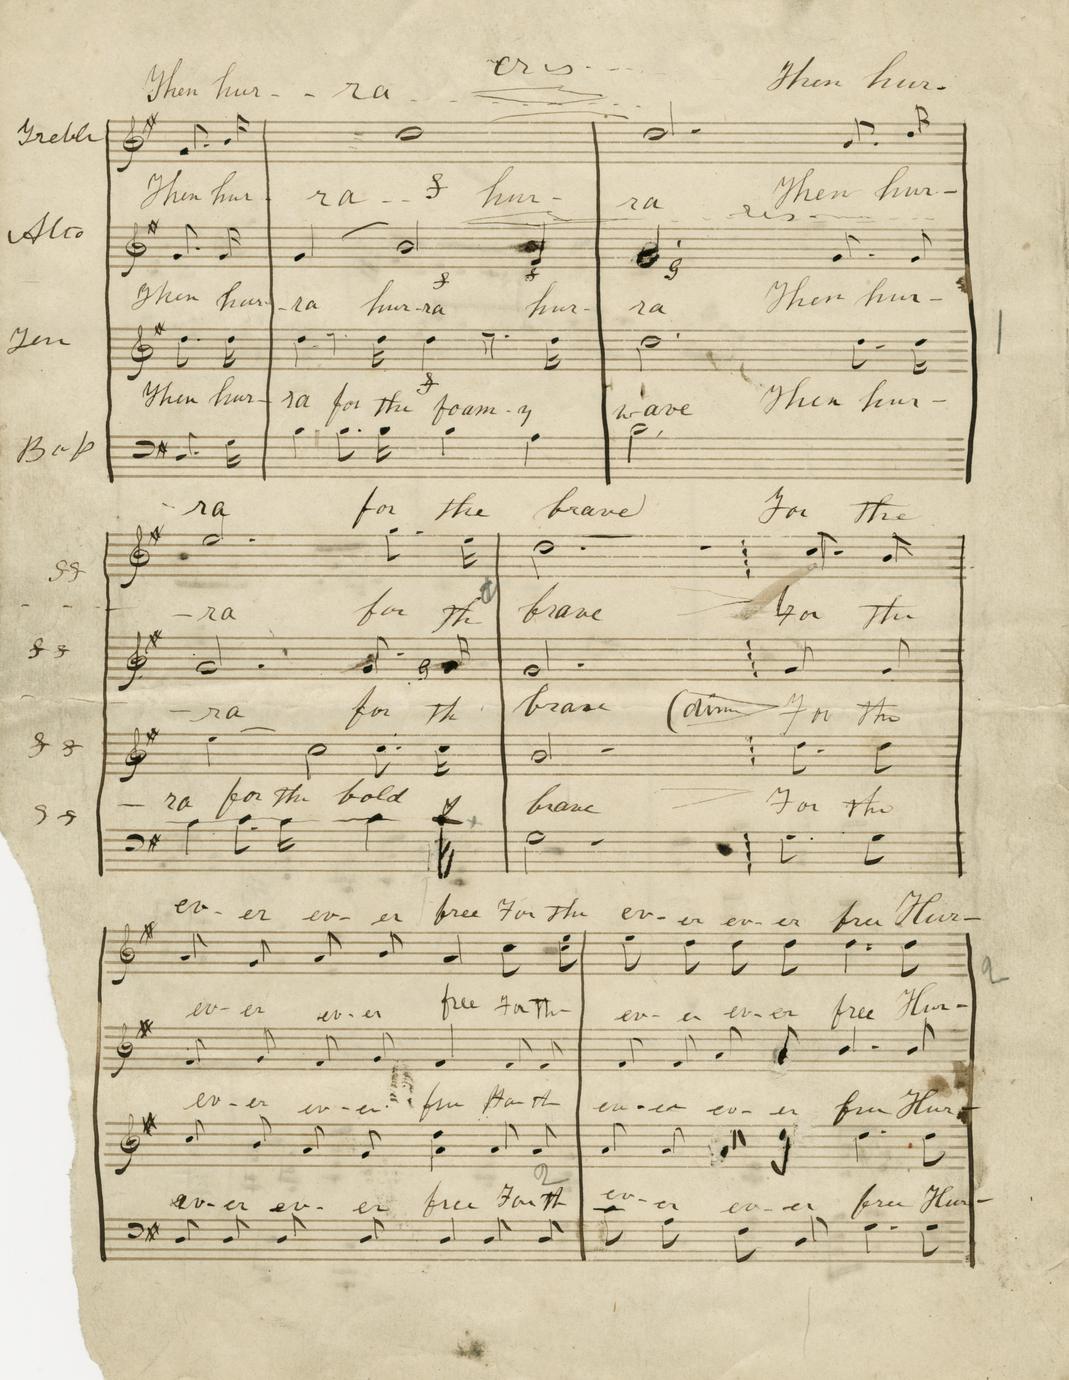 cres - - -
Then hur - - ra - - - Then hur-
Treble
Then hur- ra - - f hur- ra Then hur-
Alto
res - - -
Then hur- -ra hur-ra hur- ra Then hur-
Ten
Then hur- ra for the foam-y wave Then hur-
Bass
- ra for the brave For the
ff
-ra for the brave For the
ff
-ra for th brave (dim For the
ff
- ra for the bold & brave For the
ff
ev- er ev- er free For the ev- er ev- er free Hur-
2
ev- er ev- er free For th- ev- er ev- er free Hur-
ev- er ev- er free For th ev- er ev- er free Hur-
2
ev- er ev- er free For th ev- er ev- er free Hur-